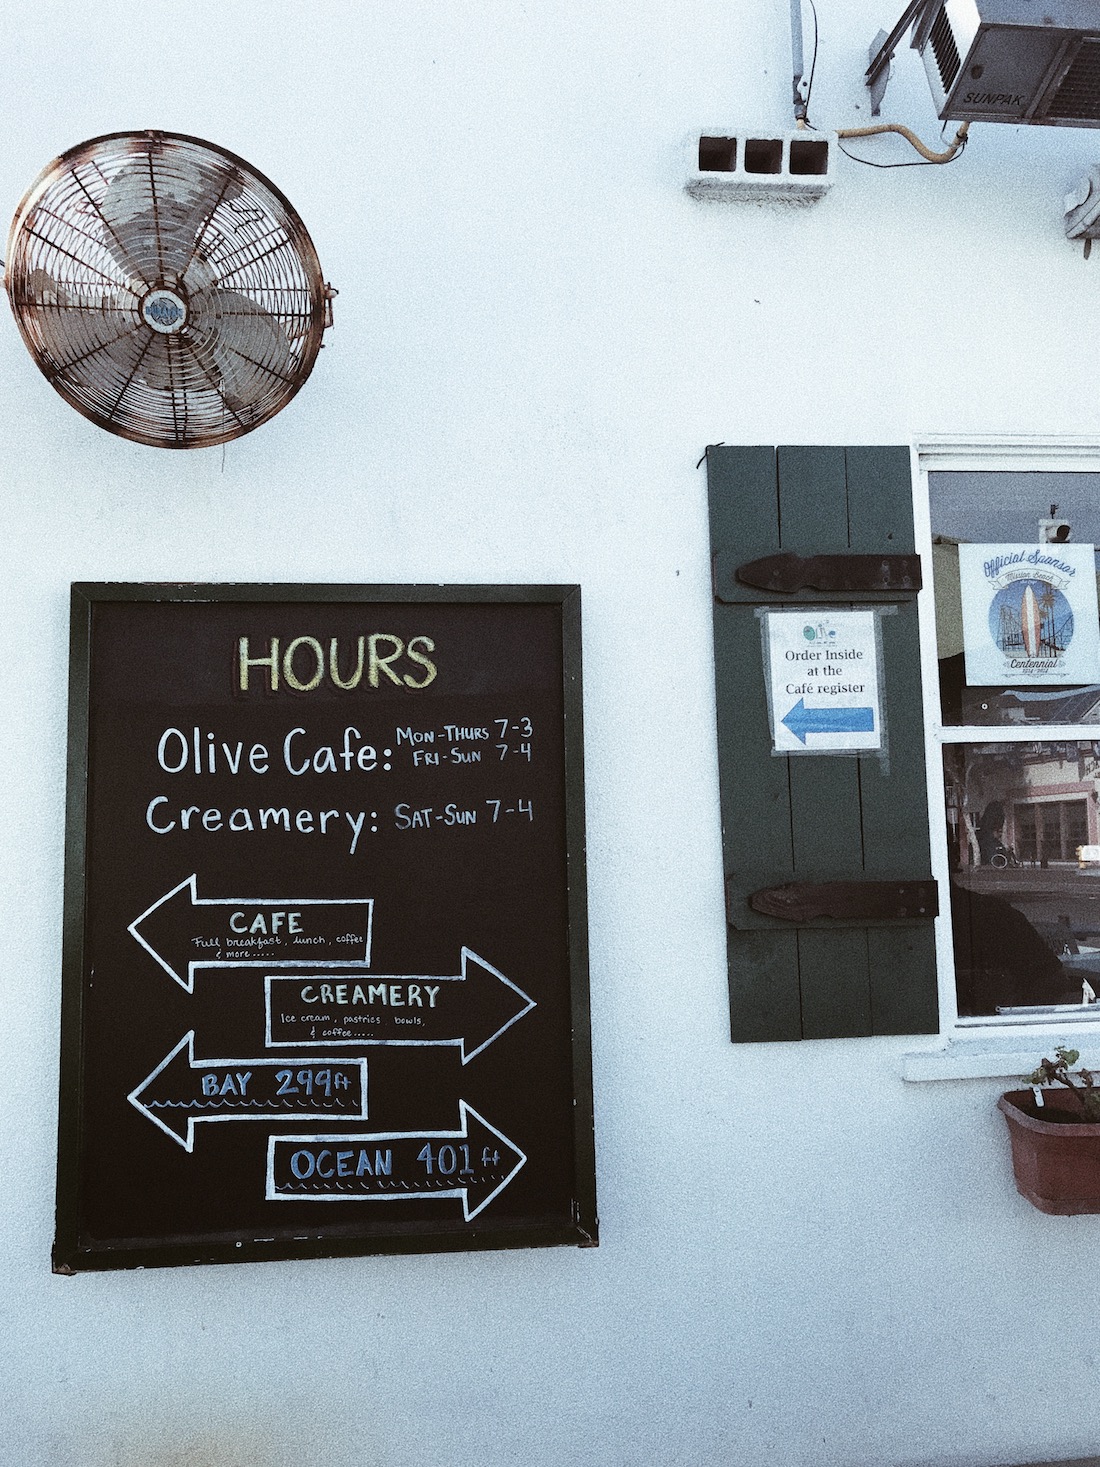 SUNPAK
HOURS
Olive Cafe: MON-THURS 7-3
FRI-SUN 7-4
Creamery: SAT-SUN 7-4
CAFE
Full breakfast, lunch, coffee
& more.....
CREAMERY
Ice cream, pastries, bowls,
& coffee.....
BAY 299ft
OCEAN 401 ft
Olive
Order Inside
at the
Café register
Official Sponsor
Mission Beach
Centennial